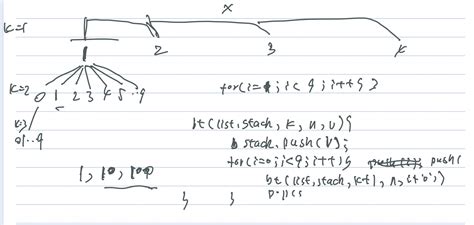 x
k=1
1 2 3 k
k=2
0 1 2 3 4 5 .. 9
k=3
0 1 .. 9
for(i= ; i< 9 ; i++) {
bt(list, stack, k, n, v){
stack.push(v);
for(i=0; i<9; i++){
push(
bt(list, stack, k+1, n, i+'0');
1, 10, 100
} }